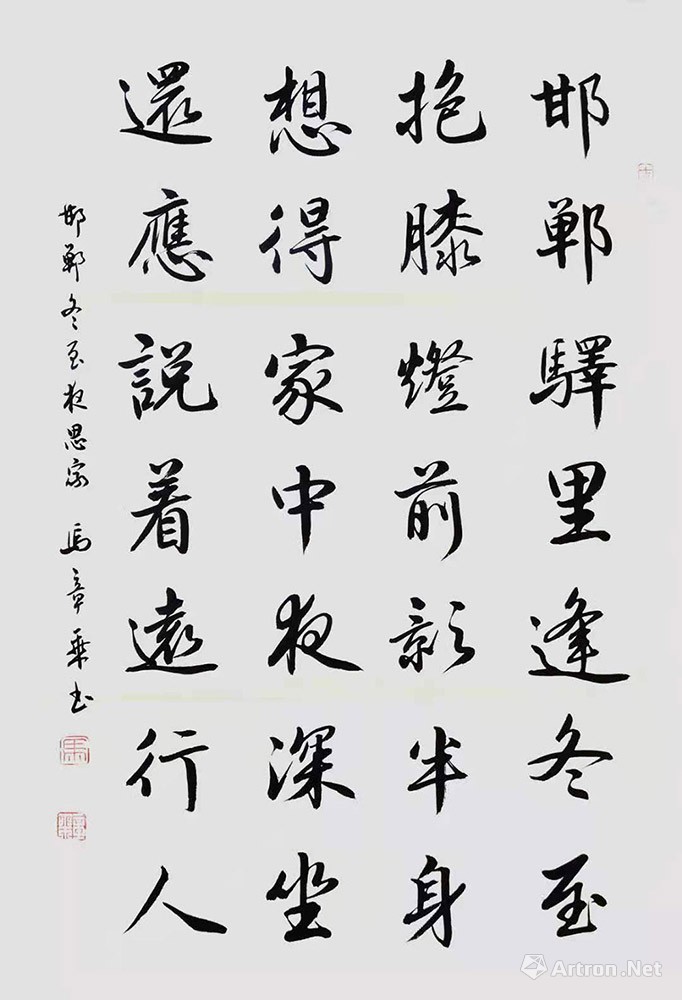 邯鄲驛里逢冬至
抱膝燈前影半身
想得家中夜深坐
還應説着遠行人
邯鄲冬至夜思家 馬章乘书
Artron.Net